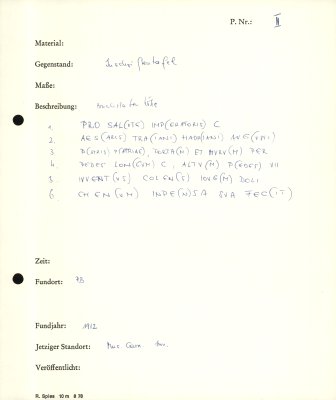 P. Nr.: II
Material:
Gegenstand: Inschriftentafel
Maße:
Beschreibung:
1. PRO SAL(UTE) IMP(ERATORIS) C
2. AES(ARIS) TRA(IANI) HADR(IANI) AVG(VSTI)
3. P(ATRIS) P(ATRIAE), PORTA(M) ET MVRV(M) PER
4. PEDES LON(GVM) C, ALTV(M) P(EDES) VII
5. IVVENT(VS) COLEN(S) IOVE(M) DOLI
6. CHEN(VM) INPE(N)SA SVA FEC(IT)
Zeit:
Fundort: PB
Fundjahr: 1912
Jetziger Standort: Mus. Carn.
Veröffentlicht:
R. Spies 10 m 8 78